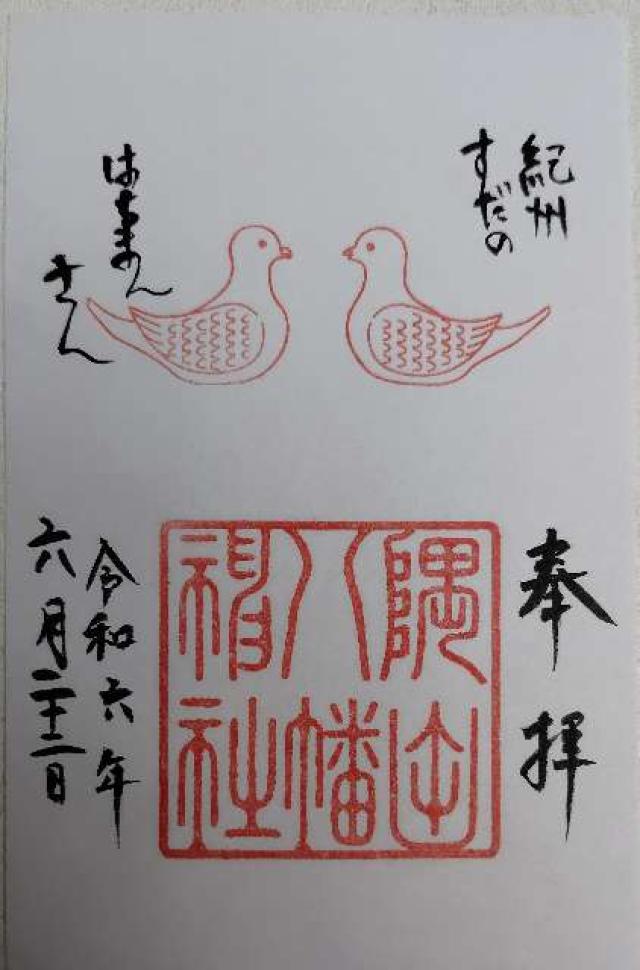 紀州
すだの
はちまん
さん
奉拝
隅田
八幡
神社
令和六年
六月二十二日